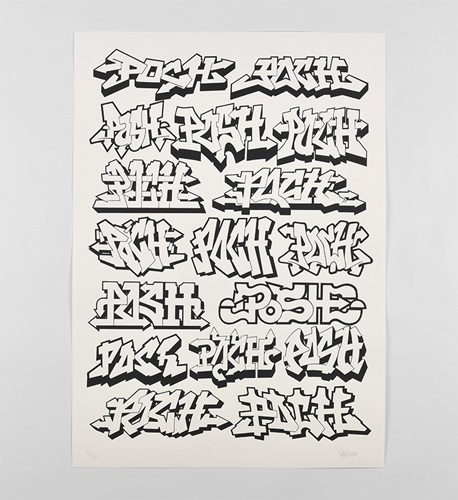 POCH POCH
POSH POSH POCH
POCH POCH
POCH POCH POCH
POSH POSHE
POCH POCH POSH
POCH POCH